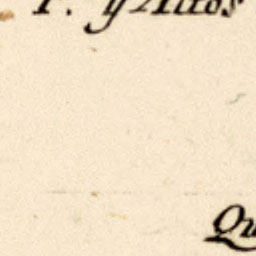 P. y Altos
Qu